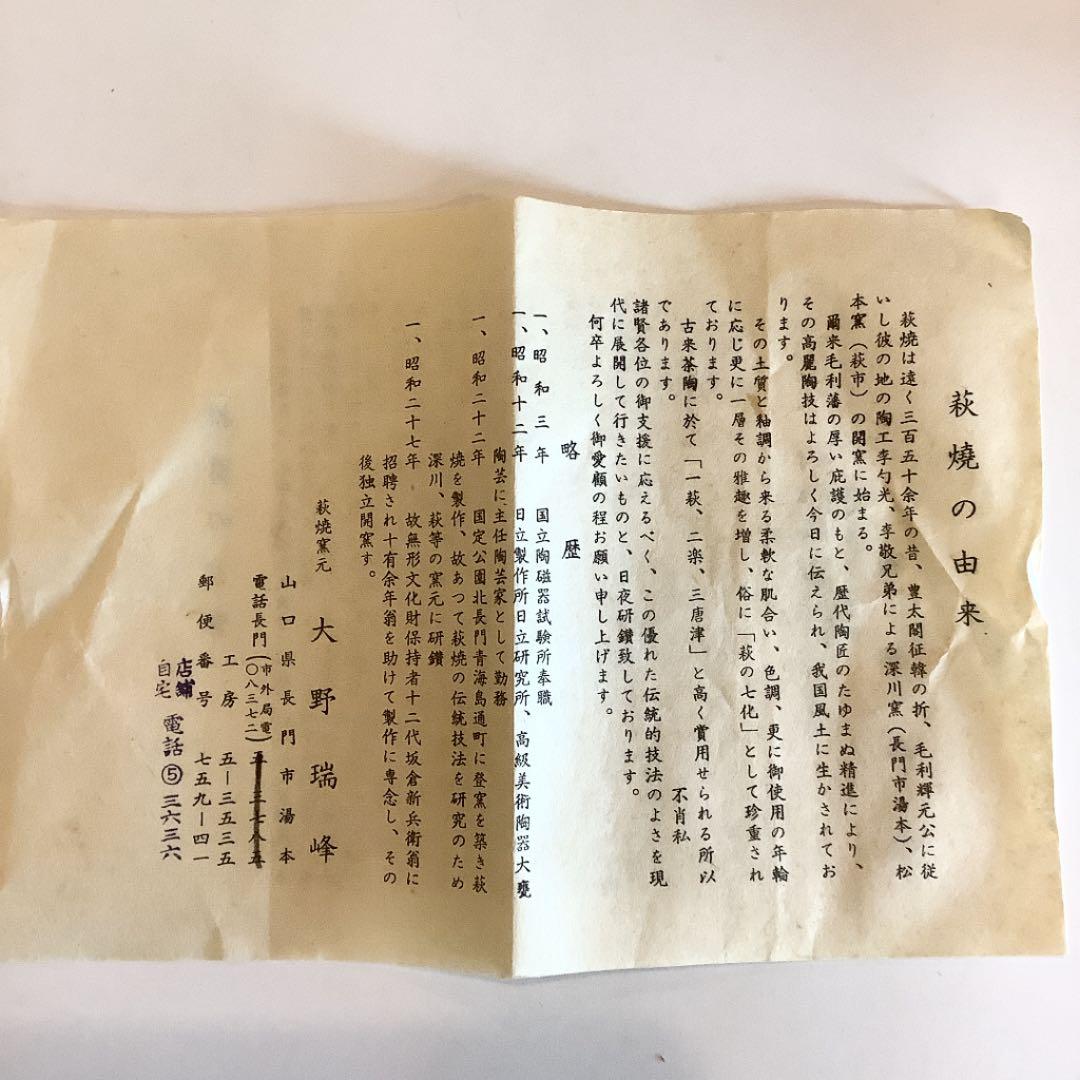 萩燒の由来
萩燒は遠く三百五十余年の昔、豊太閤征韓の折、毛利輝元公に従
いし彼の地の陶工李勺光、李敬兄弟による深川窯（長門市湯本）、松
本窯（萩市）の開窯に始まる。
爾来毛利藩の厚い庇護のもと、歴代陶匠のたゆまぬ精進により、
その高麗陶技はよろしく今日に伝えられ、我国風土に生かされてお
ります。
その土質と釉調から来る柔軟な肌合い、色調、更に御使用の年輪
に応じ更に一層その雅趣を増し、俗に「萩の七化」として珍重され
ております。
古来茶陶に於て「一萩、二楽、三唐津」と高く賞用せられる所以
であります。　不肖私
諸賢各位の御支援に応えるべく、この優れた伝統的技法のよさを現
代に展開して行きたいものと、日夜研鑽致しております。
何卒よろしく御愛顧の程お願い申し上げます。
略歴
一、昭和三年　国立陶磁器試験所奉職
一、昭和十二年　日立製作所日立研究所、高級美術陶器大甕
陶芸に主任陶芸家として勤務
一、昭和二十二年　国定公園北長門青海島通町に登窯を築き萩
焼を製作、故あつて萩焼の伝統技法を研究のため
深川、萩等の窯元に研鑽
一、昭和二十七年　故無形文化財保持者十二代坂倉新兵衛翁に
招聘され十有余年翁を助けて製作に専念し、その
後独立開窯す。
萩焼窯元　大野瑞峰
山口県長門市湯本
電話長門（市外局電）（〇八三七二）五ー三七八五
工房　五ー三五三五
郵便番号　七五九ー四一
店舗
自宅　電話⑤三六三六